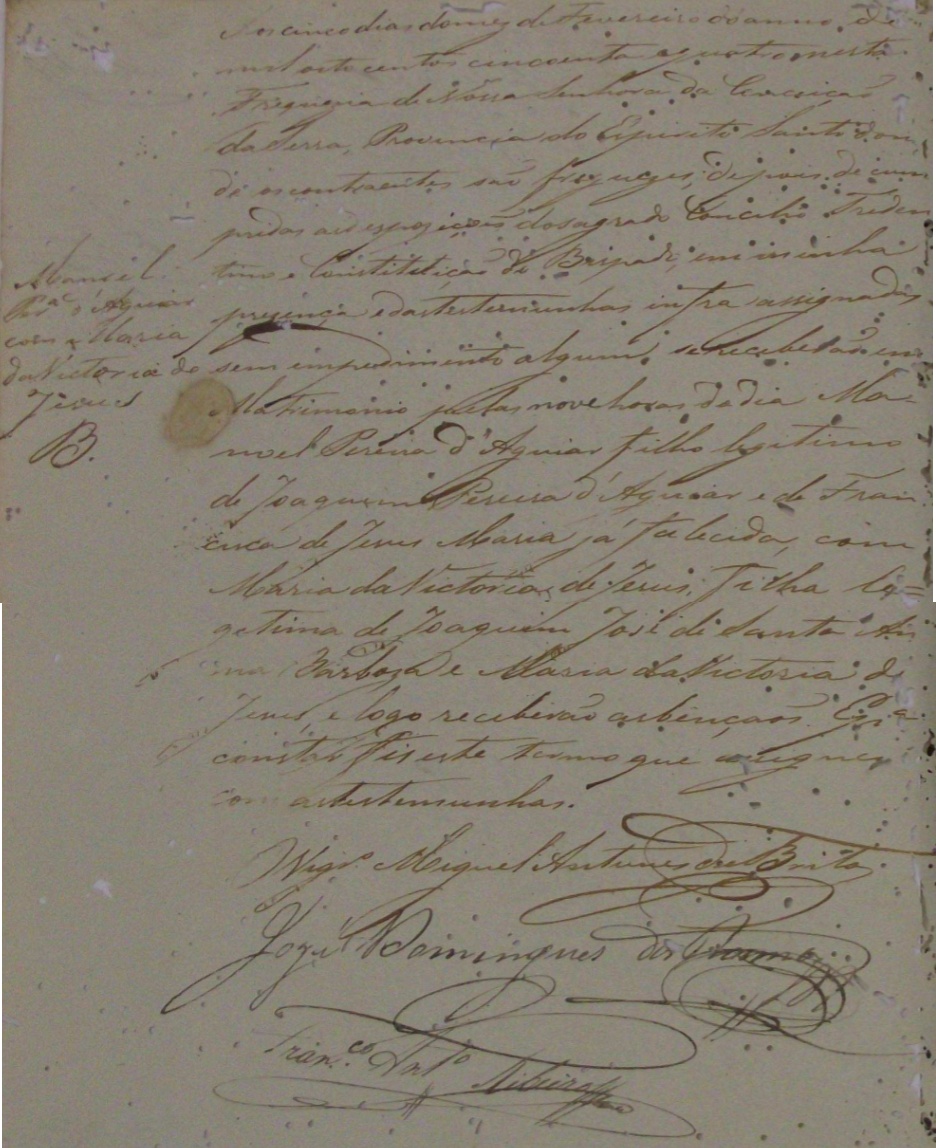 Aos cinco dias do mez de Fevereiro do anno de
mil oito centos cincoenta e quatro nesta
Freguezia de Nossa Senhora da Conceição
da Serra, Provincia do Espirito Santo don
de os contraentes são freguezes, depois de cum
pridas as desposições do sagrado Concilio Triden
tino e Constituição do Bispado, em minha
presença e das testemunhas infra assignadas
sem impedimento algum, se receberão em
Matrimonio pelas nove horas do dia Ma-
noel Pereira d'Aguiar filho legitimo
de Joaquim Pereira d'Aguiar e de Fran
cisca de Jesus Maria já falecida, com
Maria da Victoria de Jesus, filha le=
getima de Joaquim José de Santa An
na Barboza e Maria da Victoria de
Jesus, e logo receberão as bençaõs. E pa
constar fis este termo que assignei
com as testemunhas.
Manoel
Pra d'Aguiar
com Maria
da Victoria de
Jesus
B.
Vigro Miguel Antunes de Brito
José Domingues dos
Franco Anto Ribeiro